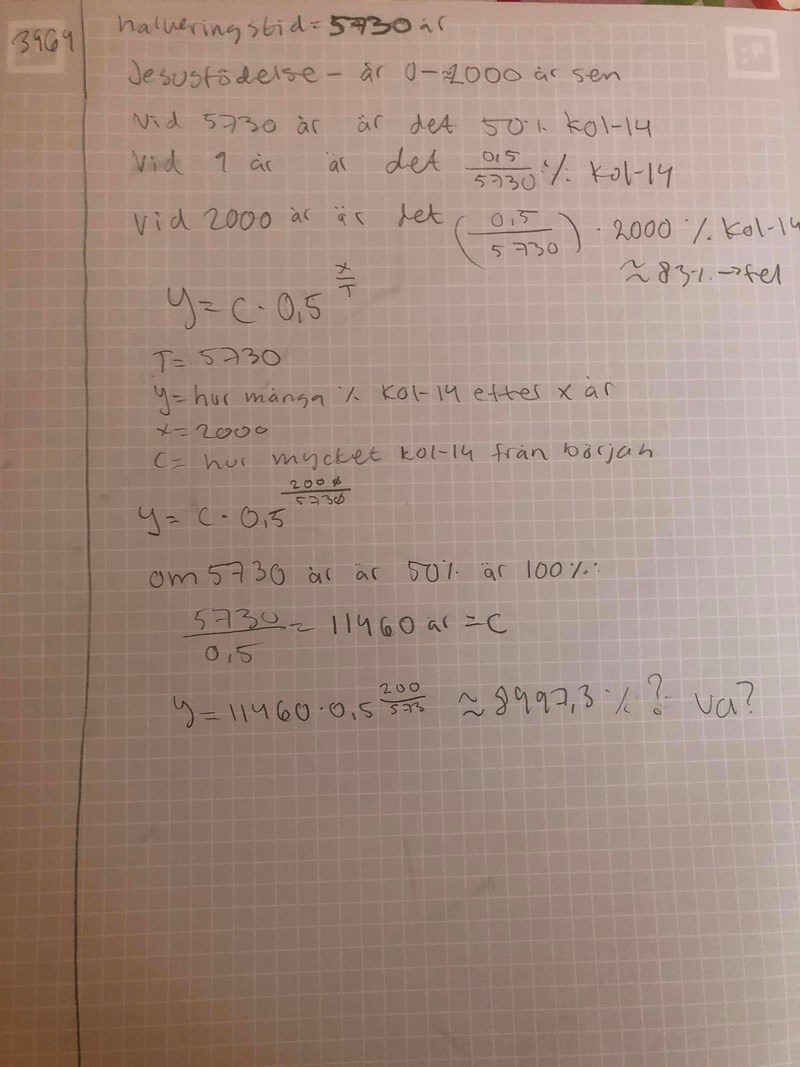 3969
halveringstid = 5730 år
Jesusfödelse - år 0 - 2000 år sen
Vid 5730 år är det 50% kol-14
Vid 1 år är det 0,5/5730 % kol-14
Vid 2000 år är det (0,5/5730) · 2000 % kol-14
≈ 83% → fel
y = C · 0,5^(x/T)
T = 5730
y = hur många % kol-14 efter x år
x = 2000
C = hur mycket kol-14 från början
y = C · 0,5^(2000/5730)
om 5730 år är 50% är 100%:
5730/0,5 = 11460 år = C
y = 11460 · 0,5^(200/573) ≈ 8997,3 % ? va?